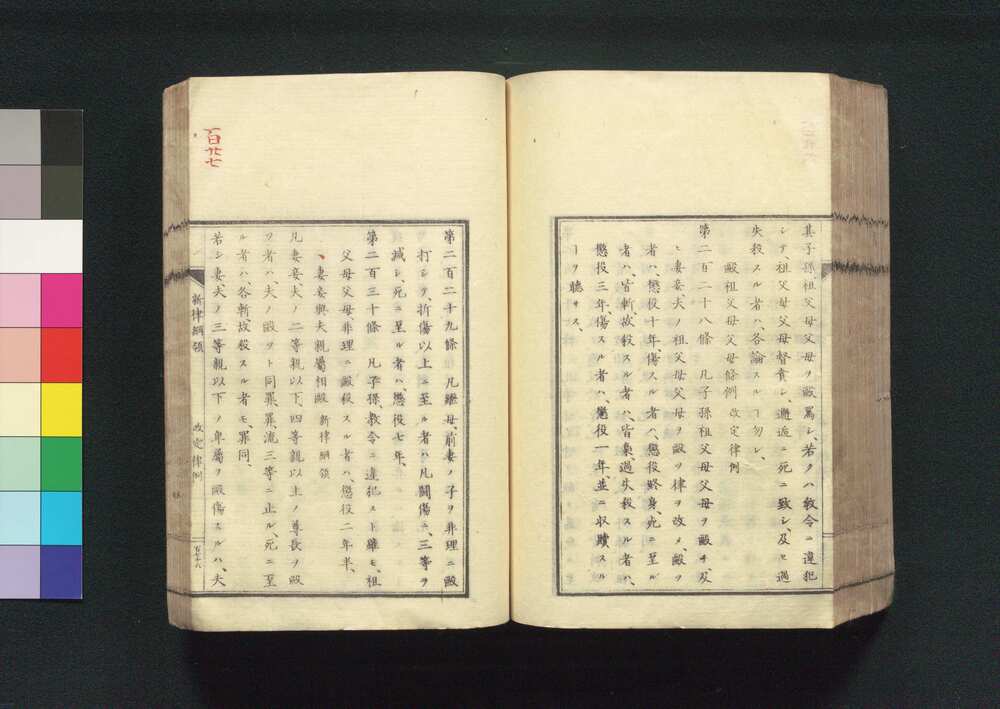 其子孫祖父母父母ヲ毆罵シ、若クハ教令ニ違犯
シテ、祖父母父母督責シ、邂逅ニ死ニ致シ、及ヒ過
失殺スル者ハ、各論スルヿ勿レ、
毆祖父母父母條例 改定律例
第二百二十八條 凡子孫祖父母父母ヲ毆チ、及
ヒ妻妾夫ノ祖父母父母ヲ毆ツ律ヲ改メ、毆ツ
者ハ、懲役十年傷スル者ハ、懲役終身、死ニ至ル
者ハ、皆斬、故殺スル者ハ、皆梟、過失殺スル者ハ、
懲役三年、傷スル者ハ、懲役一年、並ニ収贖スル
ヿヲ聽サス、
百廿七
第二百二十九條 凡繼母、前妻ノ子ヲ非理ニ毆
打シテ、折傷以上ニ至ル者ハ、凡鬪傷ニ、三等ヲ
減シ、死ニ至ル者ハ、懲役七年、
第二百三十條 凡子孫、教令ニ違犯スト雖モ、祖
父母父母、非理ニ毆殺スル者ハ、懲役二年半、
妻妾與夫親屬相毆 新律綱領
凡妻妾、夫ノ二等親以下、四等親以上ノ尊長ヲ毆
ツ者ハ、夫ノ毆ツト同罪、罪、流三等ニ止ル、死ニ至
ル者ハ、各斬、故殺スル者モ罪同、
若シ妻、夫ノ三等親以下ノ卑屬ヲ毆傷スルハ、夫
新律綱領 改定律例